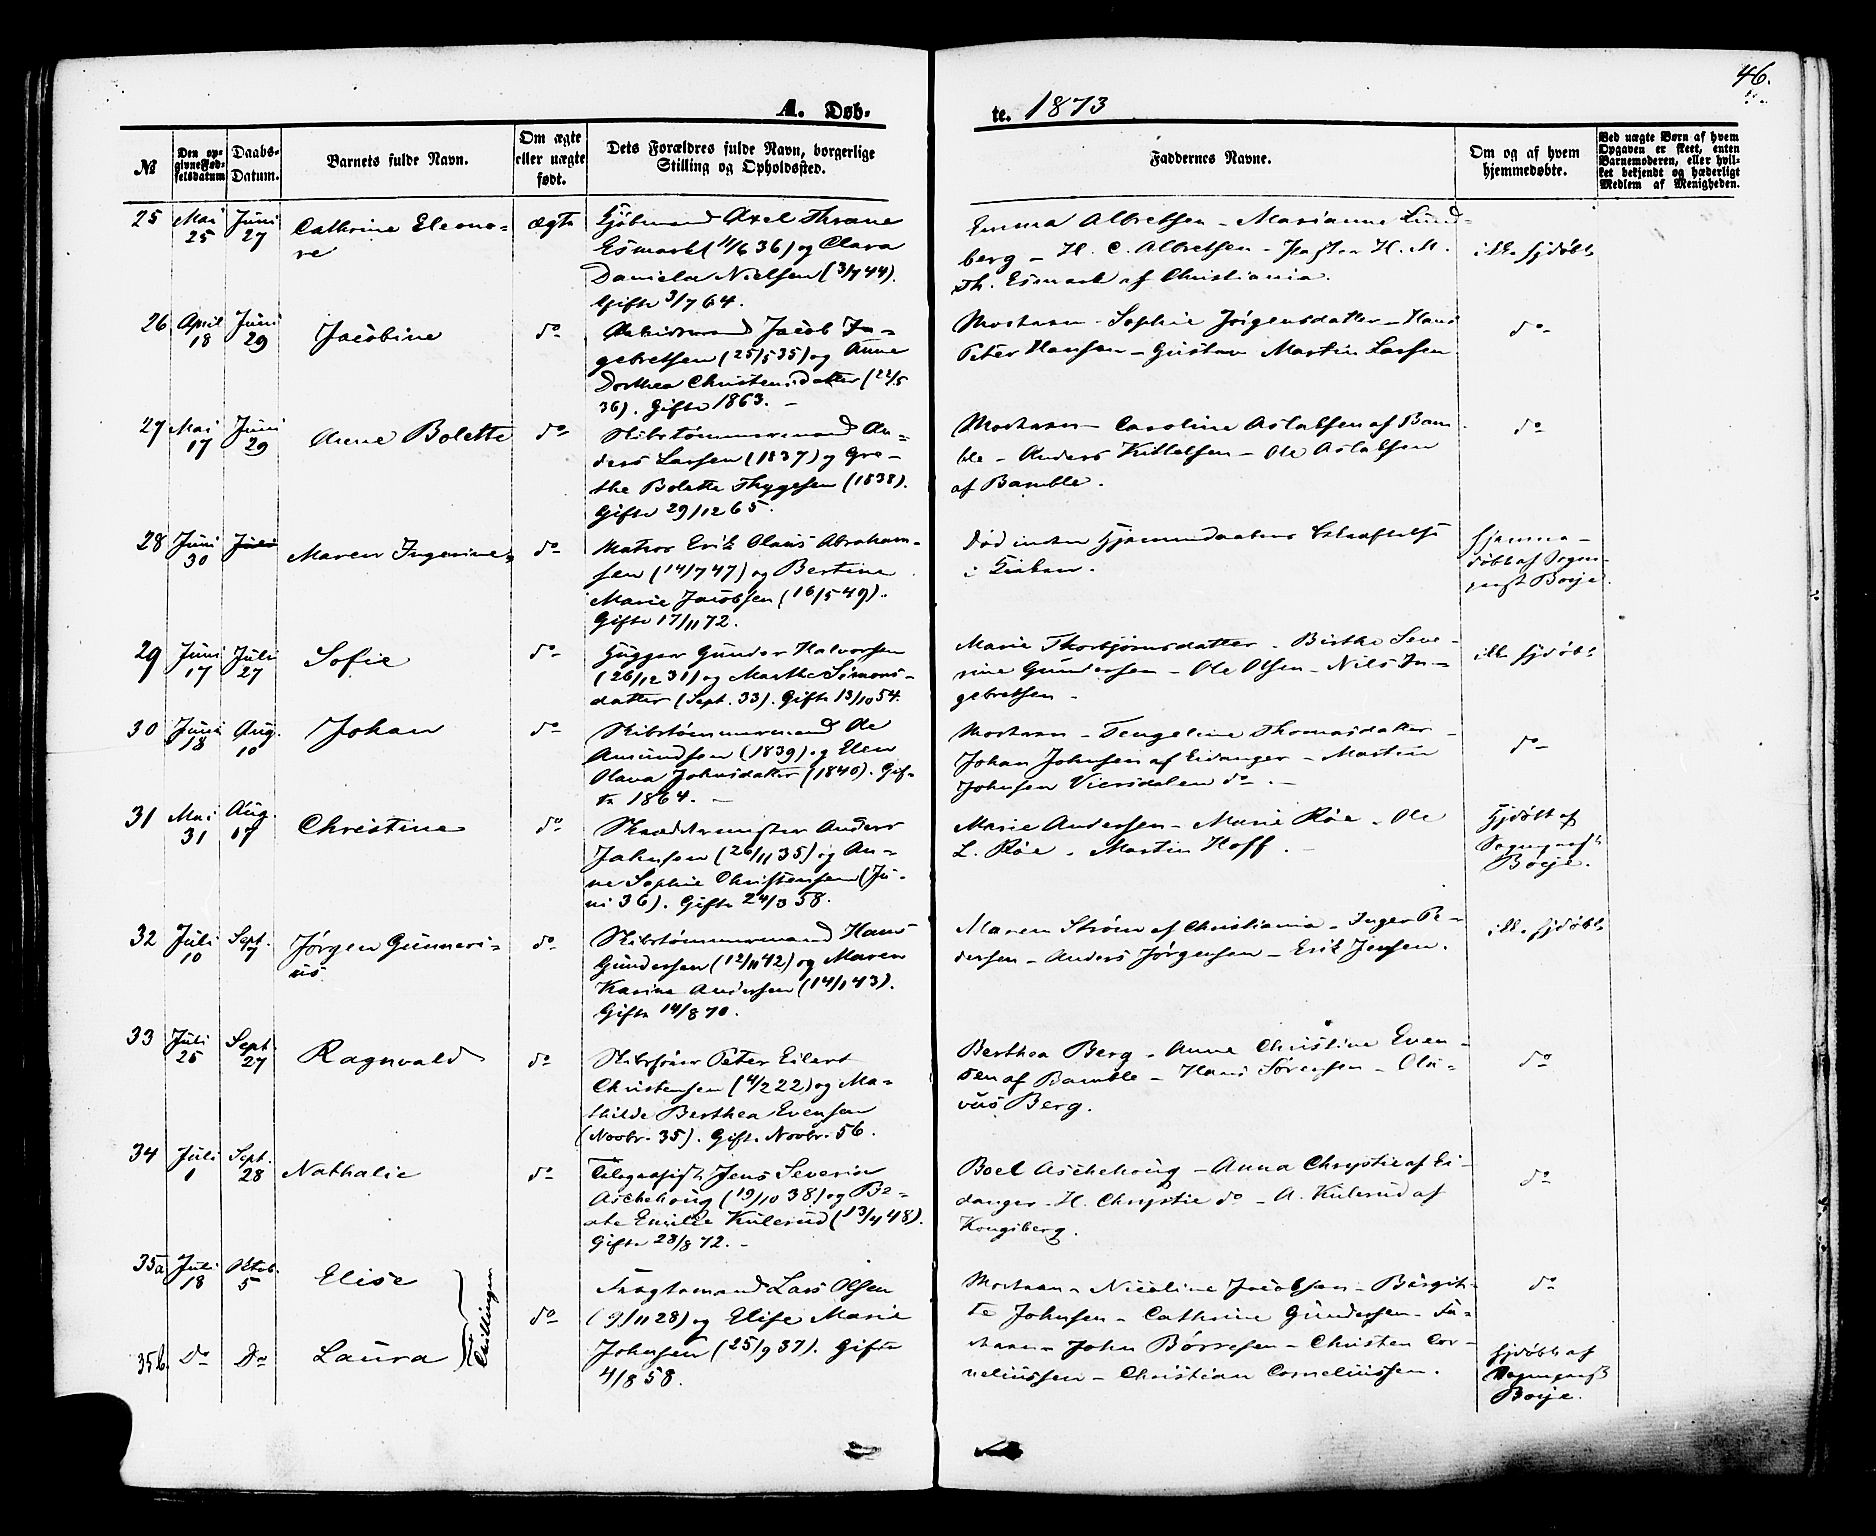 46.
A. Døb-
te. 1873
№
Den opgivne Fødselsdatum
Daabs-Datum.
Barnets fulde Navn.
Om ægte eller uægte født.
Dets Forældres fulde Navn, borgerlige Stilling og Opholdssted.
Faddernes Navne.
Om og af hvem hjemmedøbte.
Ved uægte Børn af hvem Opgaven er skeet, enten Barnemoderen, eller hvilket bekjendt og hæderligt Medlem af Menigheden.
25 Mai 25 Juni 27 Cathrine Eleono-
re
ægte
Kjøbmand Axel Thrane
Esmark (11/6 36) og Clara
Daniela Nielsen (3/7 44).
Gifte 3/7 64.
Emma Albretsen - Marianne Lund-
berg - H. C. Albretsen - Pastor H. M.
Th. Esmark af Christiania.
ikke hjdøbt
26 April 18 Juni 29 Jacobine
do
Arbeidsmand Jacob In-
gebretsen (25/5 35) og Anne
Dorthea Christensdatter (22/5
36). Gifte 1863. -
Moderen - Sophie Jørgensdatter - Hans
Peter Hansen - Gustav Martin Larsen
do
27 Mai 17 Juni 29 Anne Bolette
do
Skibstømmermand An-
ders Larsen (1837) og Gre-
the Bolette Thygesen (1838).
Gifte 29/12 65.
Moderen - Caroline Aslaksen af Bam-
ble - Anders Kittelsen - Ole Aslaksen
af Bamble.
do
28 Juni 30 Juli Maren Ingerine
do
Matros Erik Olaus Abraham-
sen (14/7 47) og Bertine
Marie Jacobsen (16/5 49).
Gifte 17/11 72.
Død inden Hjemmedaabens Bekræftelse
i Kirken.
hjemme-
døbt af Sogne-
præst Borje.
29 Juni 17 Juli 27 Sofie
do
Gunder Halvorsen
(26/12 31) og Marthe Simons-
datter (Sept. 33). Gifte 13/10 54.
Marie Thorbjørnsdatter - Birthe Seve-
rine Gundersen - Ole Olsen - Nils In-
gebretsen -
ikke hjdøbt
30 Juni 18 Aug. 10 Johan
do
Skibstømmermand Ole
Amundsen (1839) og Elen
Olava Johnsdatter (1840). Gif-
te 1864. -
Moderen - Tengeline Thomasdatter -
Johan Johnsen af Eidanger - Martin
Johnsen Viersdalen do. -
do
31 Mai 31 Aug. 17 Christine
do
Skræddermester Anders
Johnsen (26/11 35) og An-
ne Sophie Christensen (Ju-
ni 36). Gifte 24/3 58.
Marie Andersen - Marie Røe - Ole
L. Røe - Martin Hoff. -
Hjdøbt af
Sognepræst
Borje.
32 Juli 10 Sept. 7 Jørgen Gunneri-
us
do
Skibstømmermand Hans
Gundersen (12/11 42) og Maren
Karine Andersen (14/1 43).
Gifte 14/8 70.
Maren Strøm af Christiania - Inger Pe-
dersen - Anders Jørgensen - Erik Jensen.
ikke hjdøbt
33 Juli 25 Sept. 27 Ragnvald
do
Skibsfører Peter Eilert
Christensen (4/2 22) og Ma-
thilde Berthea Evensen
(Novbr. 35). Gifte Novbr. 56.
Berthea Berg - Anne Christine Even-
sen af Bamble - Hans Sørensen - Ola-
vus Berg.
do
34 Juli 1 Sept. 28 Nathalie
do
Telegrafist Jens Severin
Aschehoug (19/10 38) og Be-
ate Emilie Kulerud (13/4 48).
Gifte 28/8 72. -
Boel Aschehoug - Anna Chrystie af Ei-
danger - H. Chrystie do - A. Kulerud af
Kongsberg.
do
35a Juli 18 Oktob. 5 Elise
Tvillinger
do
Lars Olsen
(9/11 28) og Elise Marie
Johnsen (25/9 37). Gifte
4/8 58.
Moderen - Nicoline Jacobsen - Birgit-
te Johnsen - Cathrine Gundersen - Fa-
deren - John Børresen - Christen Cor-
neliussen - Christian Corneliussen.
do
35b Do Do Laura
hjdøbt af
Sognepræst
Borje.